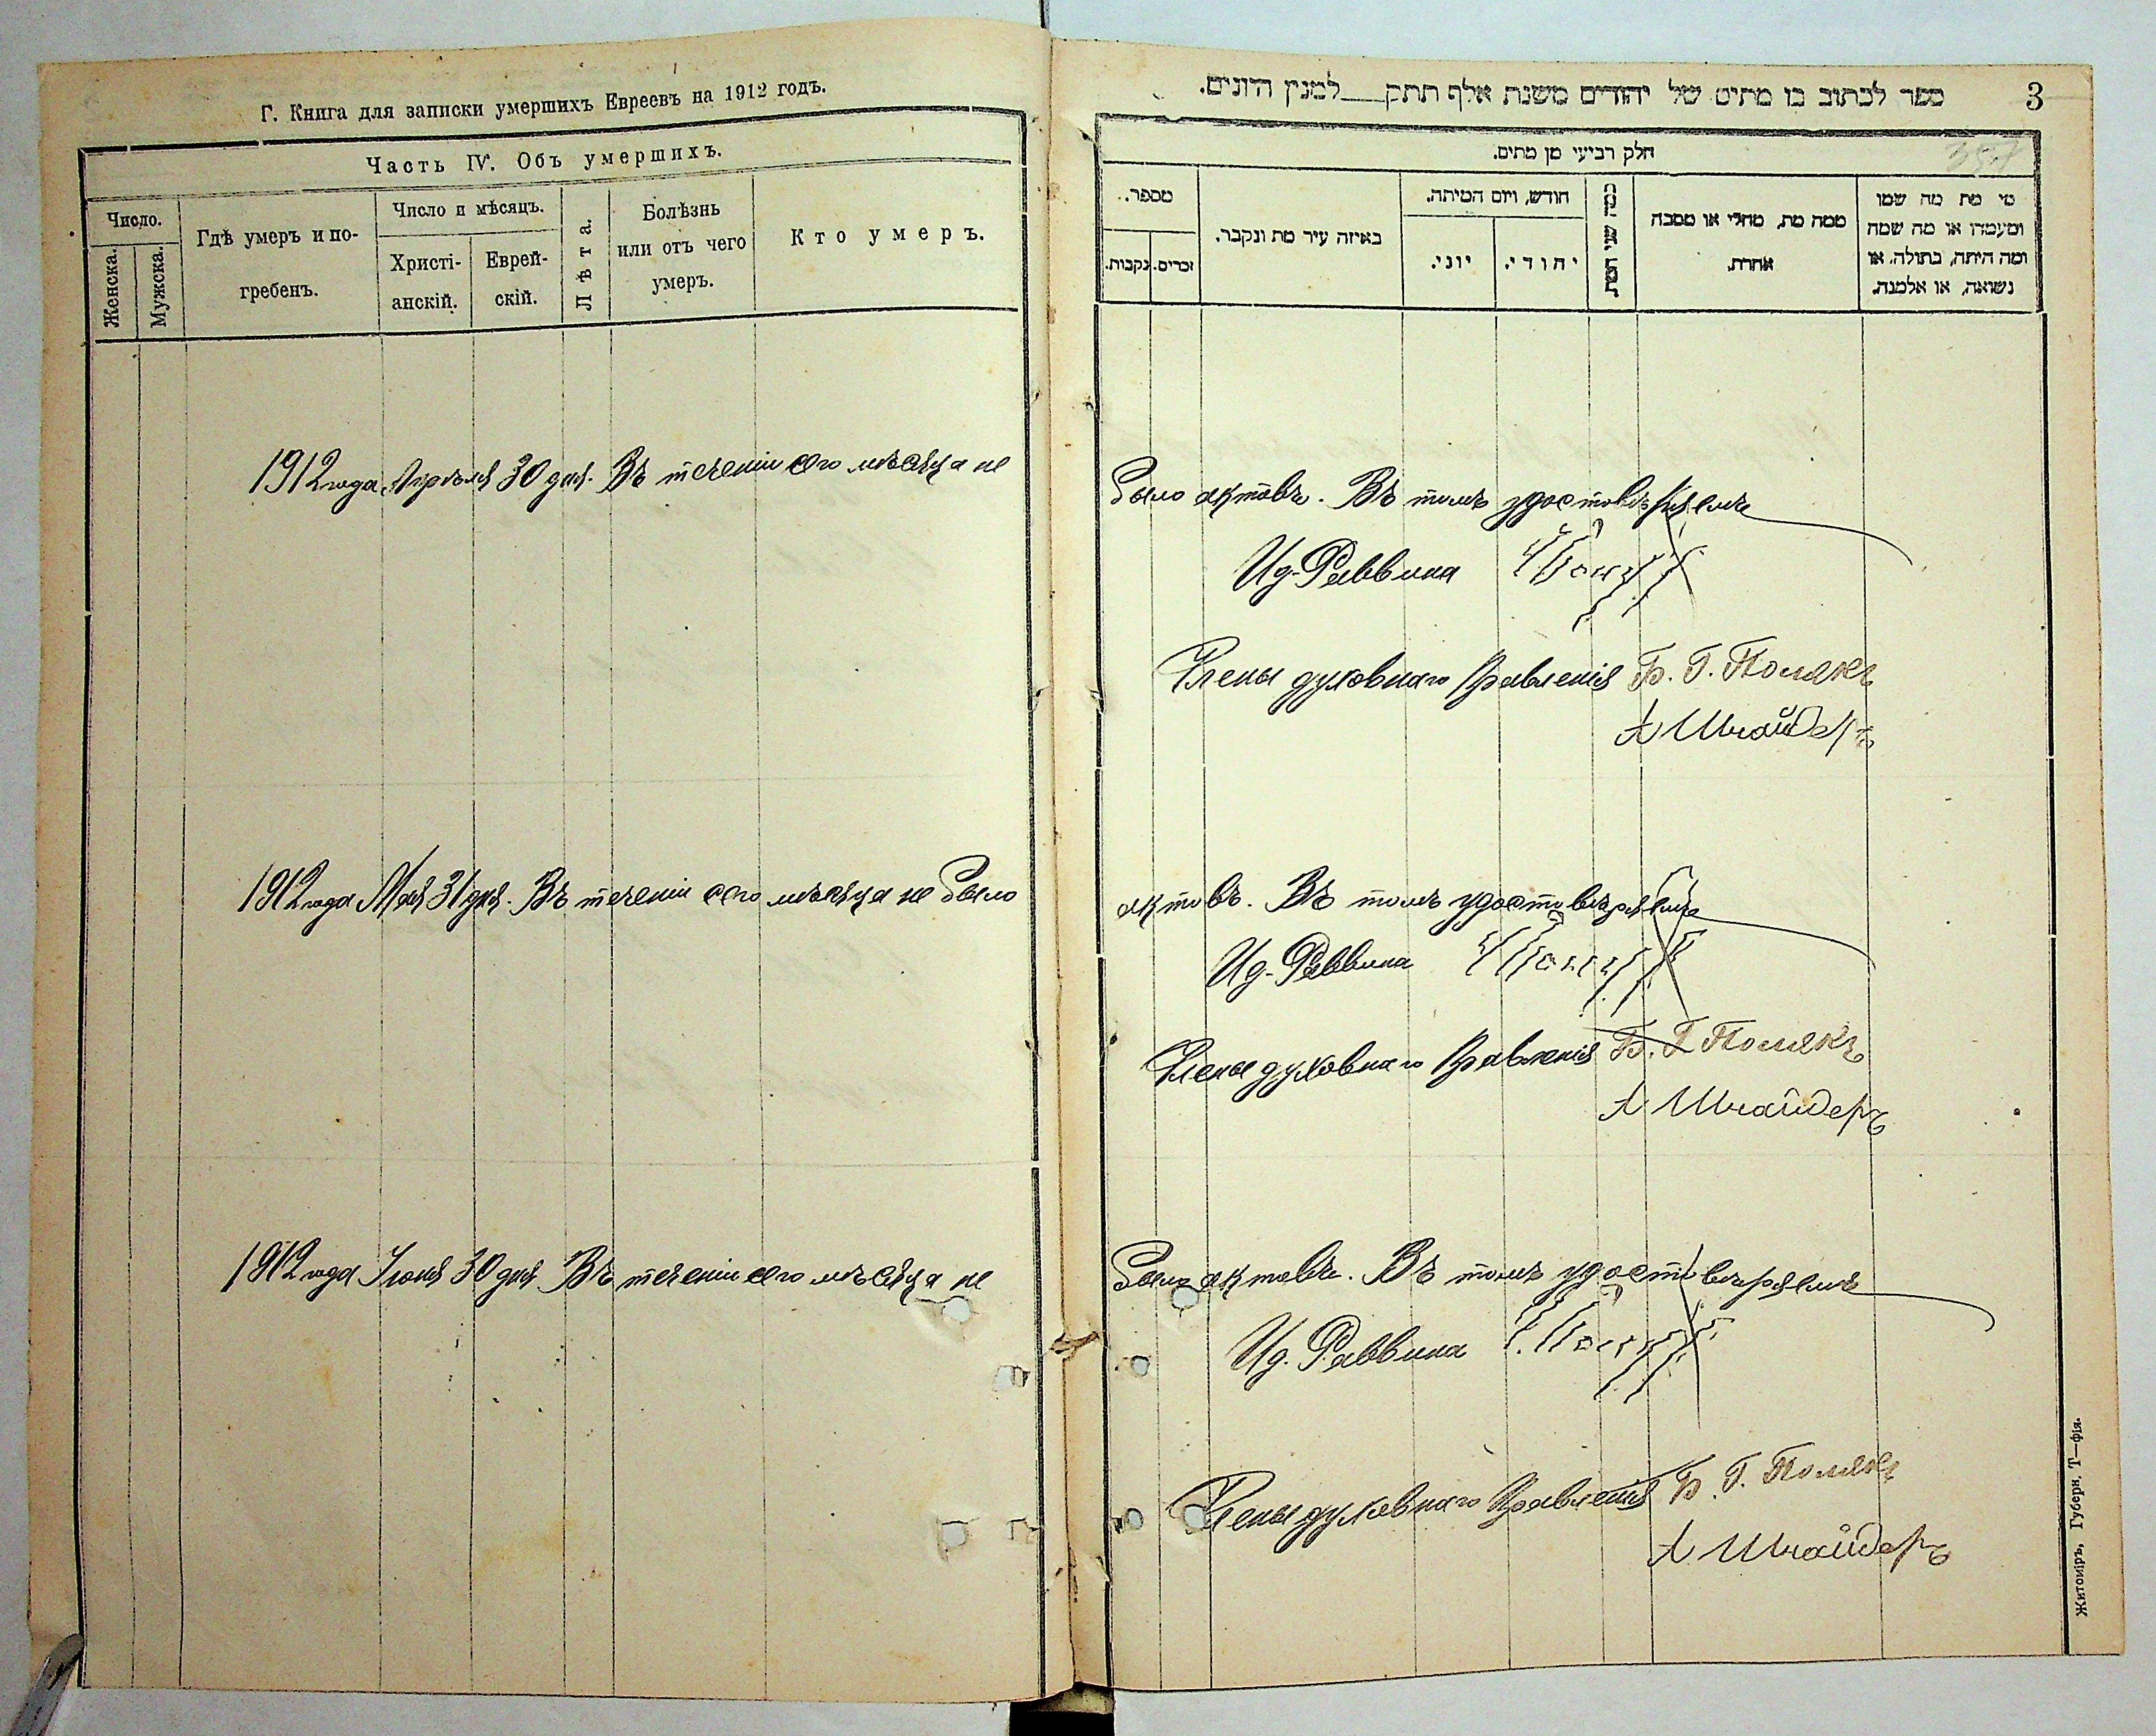 Г. Книга для записки умершихъ Евреевъ на 1912 годъ.
Часть IV. Объ умершихъ.
Число.
Женска.
Мужска.
Гдѣ умеръ и по-
гребенъ.
Число и мѣсяцъ.
Христі-
анскій.
Еврей-
скій.
Лѣта.
Болѣзнь
или отъ чего
умеръ.
Кто умеръ.
1912 года Апрѣля 30 дня. Въ теченіи сего мѣсяца не
1912 года Мая 31 дня. Въ теченіи сего мѣсяца не было
1912 года Іюня 30 дня Въ теченіи сего мѣсяца не
ספר לכתוב בו מתים של יהודים משנת אלף תתק___למנין היונים.
3
357
חלק רביעי מן מתים.
מספר.
נקבות.
זכרים.
באיזה עיר מת ונקבר.
חודש, ויום המיתה.
יוני.
יהודי.
כמה שני המת.
ממה מת, מחלי או מסבה
אחרת.
מי מת מה שמו
ומעמדו או מה שמה
ומה היתה, בתולה, או
נשואה, או אלמנה.
было актовъ. Въ томъ удостовѣряемъ
Ид. Раввина
Члены духовнаго Правленія Б. Г. Полякъ
А Шнайдеръ
актовъ. Въ томъ удостовѣряемъ
Ид. Раввина
Члены духовнаго Правленія Б. Г Полякъ
А Шнайдеръ
было актовъ. Въ томъ удостовѣряемъ
Ид. Раввина
Члены духовнаго Правленія Б. Г. Полякъ
А Шнайдеръ
Житоміръ, Губерн. Т—фія.